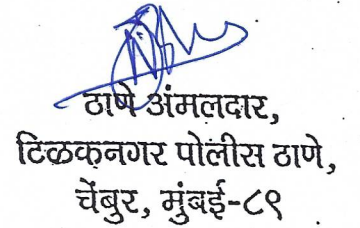 ठाणे अंमलदार,
टिळकनगर पोलीस ठाणे,
चेंबुर, मुंबई-८९